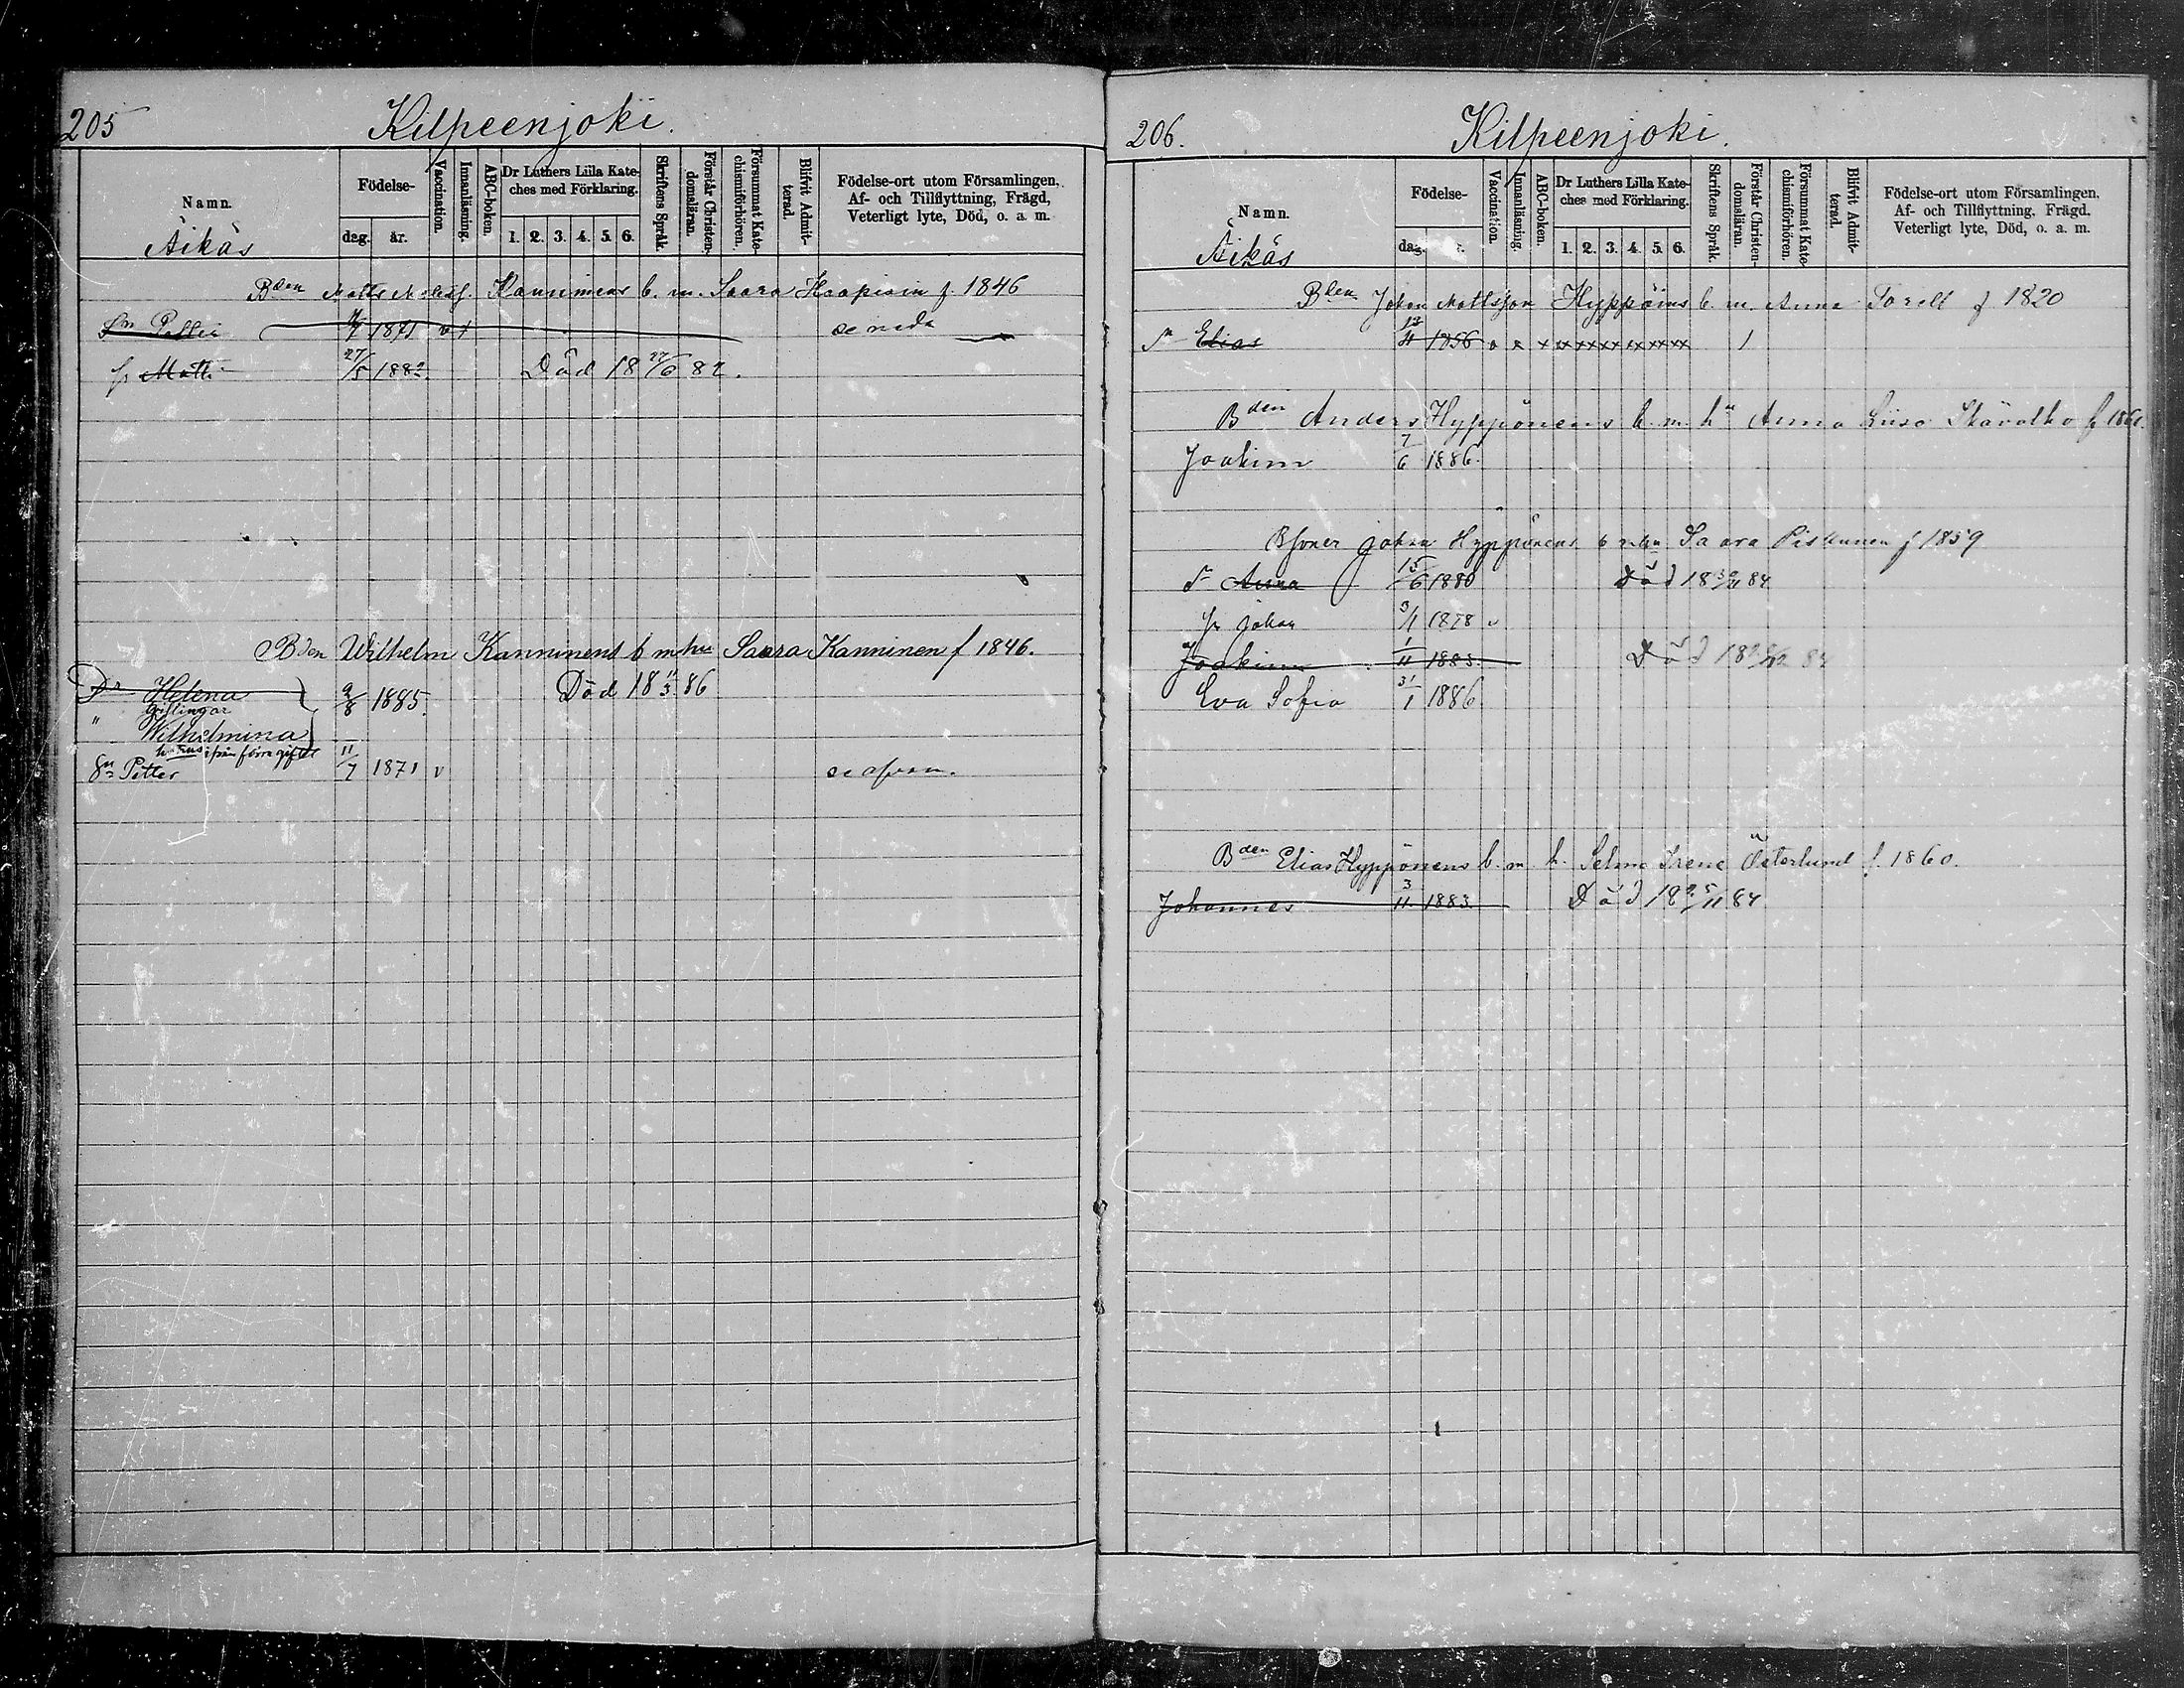 205
Kilpeenjoki.
Namn.
Äikäs
Födelse-
dag. år.
Vaccination.
Innanläsning.
ABC-boken.
Dr Luthers Lilla Kate-
ches med Förklaring.
1. 2. 3. 4. 5. 6.
Skriftens Språk.
Förstår Christen-
domsläran.
Försummat Kate-
chismiförhören.
Blifvit Admit-
terad.
Födelse-ort utom Församlingen,
Af- och Tillflyttning, Frägd,
Veterligt lyte, Död, o. a. m.
Bden Matts b. m. Saara f. 1846
1871 se neda
Matti 27/5 1882. Död 18 27/6 82.
Bden Wilhelm Kanninens b m hu Saara Kanninen f 1846.
Dr Helena 9/8 1885. Död 18 11/3 86
" Wilhelmina
Sn Petter 11/7 1871 v
206.
Kilpeenjoki.
Namn.
Äikäs
Födelse-
Vaccination.
Innanläsning.
ABC-boken.
Dr Luthers Lilla Kate-
ches med Förklaring.
1. 2. 3. 4. 5. 6.
Skriftens Språk.
Förstår Christen-
domsläran.
Försummat Kate-
chismiförhören.
Blifvit Admit-
terad.
Födelse-ort utom Församlingen,
Af- och Tillflyttning, Frägd.
Veterligt lyte, Död, o. a. m.
Bden Johan Mattsson b. m. Anna Torelt f 1820
Elias 1856 x x xx xx xx xx xx xx 1
Bden Anders Hyppönens b. m. hu Anna Liisa
Joakim 7/6 1886.
Johan Hyppönens Saara Piskunen f 1859
Anna 15/6 1880 Död 18 84
Johan 3/1 1878 v
Joakim 1/11 1883. Död 18 84
Eva Sofia 31/1 1886
Bden Elias Hyppönens b. m. h. Selma Irene Österlund f. 1860.
Johannes 3/11 1883. Död 18 25/11 84